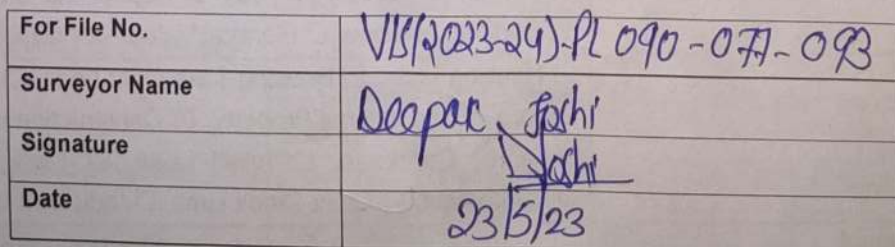 For File No. VIS(2023-24)-PL 090-077-093
Surveyor Name Deepak Joshi
Signature Joshi
Date 23/5/23